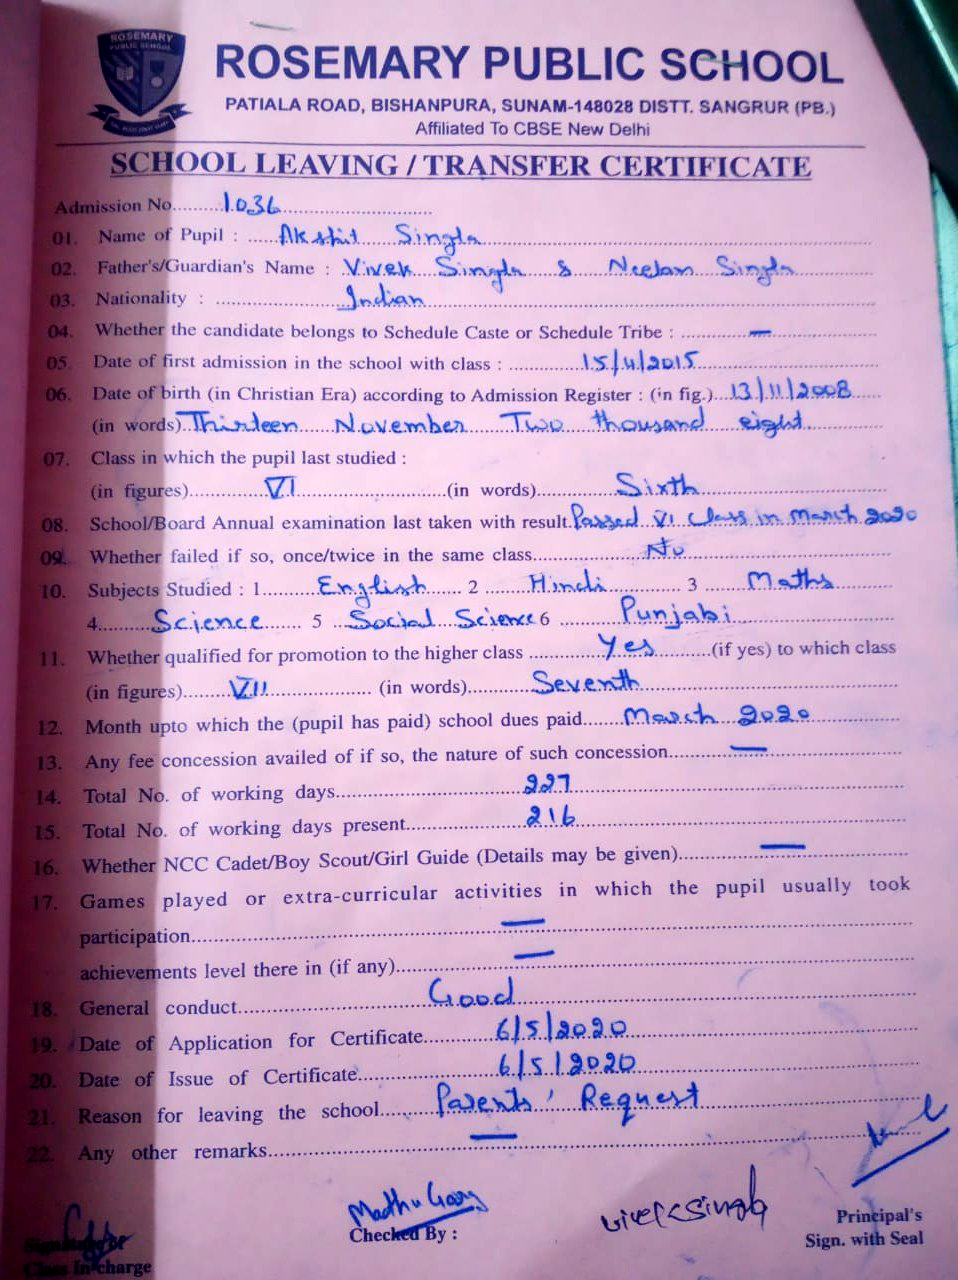 ROSEMARY
PUBLIC SCHOOL
ROSEMARY PUBLIC SCHOOL
PATIALA ROAD, BISHANPURA, SUNAM-148028 DISTT. SANGRUR (PB.)
Affiliated To CBSE New Delhi
SCHOOL LEAVING / TRANSFER CERTIFICATE
Admission No........1036
01. Name of Pupil : ......Akshit Singla
02. Father's/Guardian's Name : Vivek Singla & Neelam Singla
03. Nationality : Indian
04. Whether the candidate belongs to Schedule Caste or Schedule Tribe : —
05. Date of first admission in the school with class : 15/4/2015
06. Date of birth (in Christian Era) according to Admission Register : (in fig.) 13/11/2008
(in words) Thirteen November Two thousand eight
07. Class in which the pupil last studied :
(in figures) VI (in words) Sixth
08. School/Board Annual examination last taken with result. Passed VI Class in March 2020
09. Whether failed if so, once/twice in the same class No
10. Subjects Studied : 1 English 2 Hindi 3 Maths
4 Science 5 Social Science 6 Punjabi
11. Whether qualified for promotion to the higher class Yes (if yes) to which class
(in figures) VII (in words) Seventh
12. Month upto which the (pupil has paid) school dues paid March 2020
13. Any fee concession availed of if so, the nature of such concession —
14. Total No. of working days 227
15. Total No. of working days present 216
16. Whether NCC Cadet/Boy Scout/Girl Guide (Details may be given) —
17. Games played or extra-curricular activities in which the pupil usually took
participation —
achievements level there in (if any) —
18. General conduct Good
19. Date of Application for Certificate 6/5/2020
20. Date of Issue of Certificate 6/5/2020
21. Reason for leaving the school Parents' Request
22. Any other remarks —
Madhu Garg
vivek Singla
Signature of
Class In charge
Checked By :
Principal's
Sign. with Seal